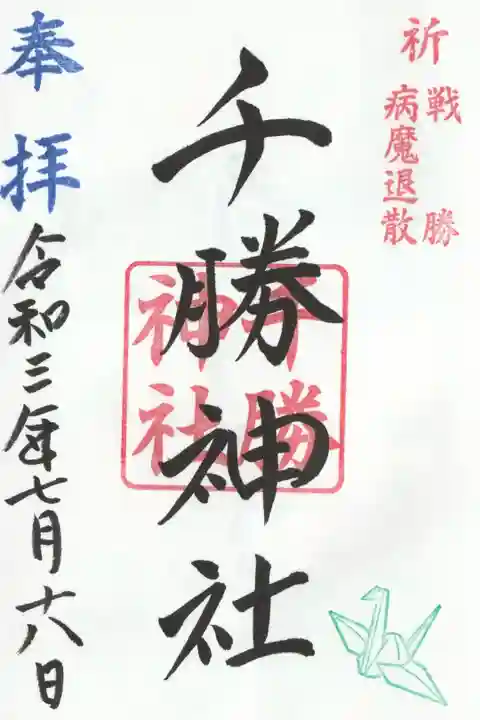 祈
戦勝
病魔退散
千勝神社
千勝
神社
奉拝
令和三年七月十八日